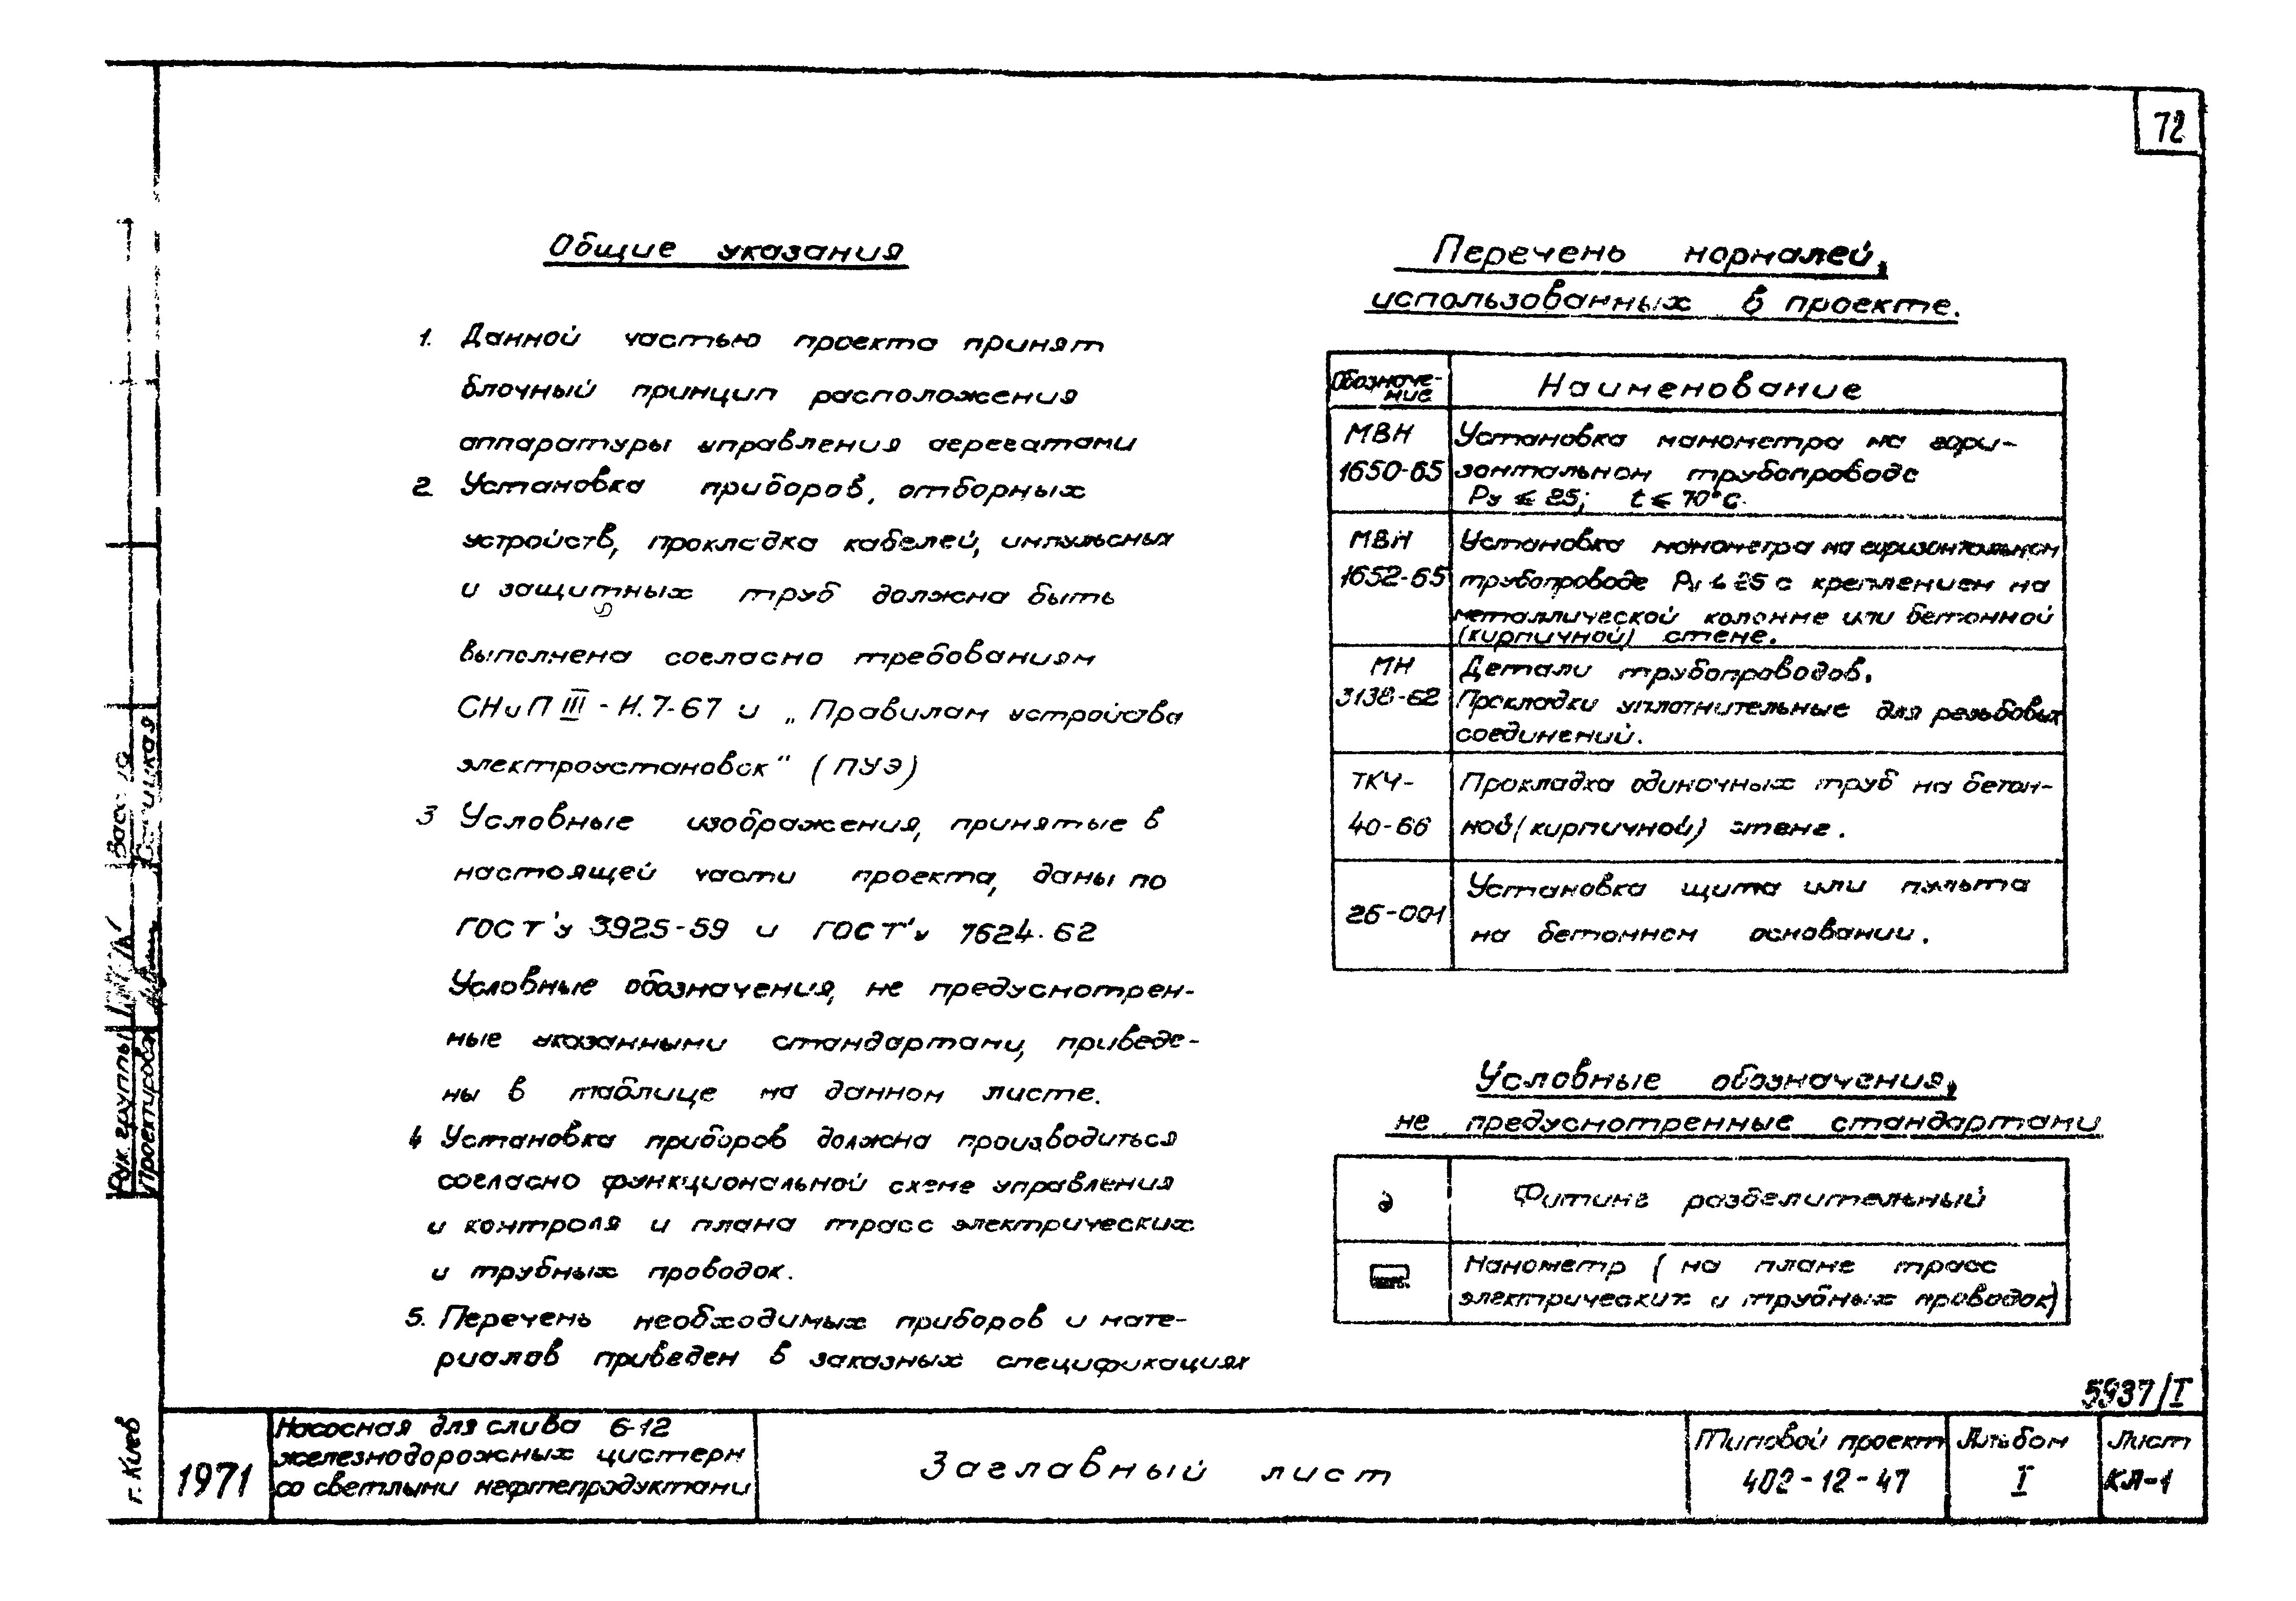 72
Общие указания
1. Данной частью проекта принят
блочный принцип расположения
аппаратуры управления агрегатами
2. Установка приборов, отборных
устройств, прокладка кабелей, импульсных
и защитных труб должна быть
выполнена согласно требованиям
СНиП III - И.7-67 и „Правилам устройства
электроустановок" (ПУЭ)
3 Условные изображения, принятые в
настоящей части проекта, даны по
ГОСТ'у 3925-59 и ГОСТ'у 7624-62
Условные обозначения, не предусмотрен-
ные указанными стандартами, приведе-
ны в таблице на данном листе.
4 Установка приборов должна производиться
согласно функциональной схеме управления
и контроля и плана трасс электрических
и трубных проводок.
5. Перечень необходимых приборов и мате-
риалов приведен в заказных спецификациях
Перечень нормалей,
использованных в проекте.
Обозначе-
ние
Наименование
МВН
1650-65
Установка манометра на гори-
зонтальном трубопроводе
Ру ≤ 25; t ≤ 70°С.
МВН
1652-65
Установка манометра на горизонтальном
трубопроводе Ру ≤ 25 с креплением на
металлической колонне или бетонной
(кирпичной) стене.
МН
3138-62
Детали трубопроводов.
Прокладки уплотнительные для резьбовых
соединений.
ТКЧ-
40-66
Прокладка одиночных труб на бетон-
ной (кирпичной) стене.
26-001
Установка щита или пульта
на бетонном основании.
Условные обозначения,
не предусмотренные стандартами
Фитинг разделительный
Манометр (на плане трасс
электрических и трубных проводок)
5937/I
Рук. группы
Проектировал
г. Киев
1971
Насосная для слива 6-12
железнодорожных цистерн
со светлыми нефтепродуктами
Заглавный лист
Типовой проект
402-12-47
Альбом
I
Лист
КЛ-1